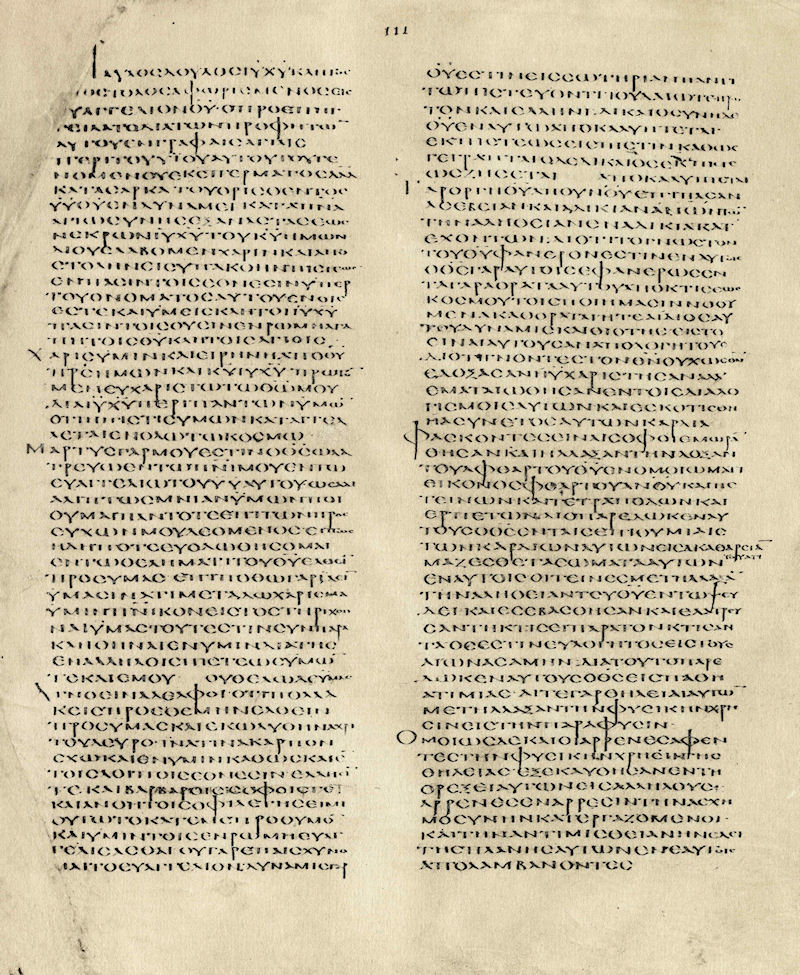 111
ΠΑΥΛΟϹΔΟΥΛΟϹΙΥΧΥΚΛΗΤΟϹ
ΑΠΟϹΤΟΛΟϹΑΦΩΡΙϹΜΕΝΟϹΕΙϹ
ΕΥΑΓΓΕΛΙΟΝΘΥΟΠΡΟΕΠΗΓ
ΓΕΙΛΑΤΟΔΙΑΤΩΝΠΡΟΦΗΤΩ
ΑΥΤΟΥΕΝΓΡΑΦΑΙϹΑΓΙΑΙϹ
ΠΕΡΙΤΟΥΥΥΑΥΤΟΥΤΟΥΓΕ
ΝΟΜΕΝΟΥΕΚϹΠΕΡΜΑΤΟϹΔΑΔ
ΚΑΤΑϹΑΡΚΑΤΟΥΟΡΙϹΘΕΝΤΟϹ
ΥΥΘΥΕΝΔΥΝΑΜΕΙΚΑΤΑΠΝΑ
ΑΓΙΩϹΥΝΗϹΕΞΑΝΑϹΤΑϹΕΩϹ
ΝΕΚΡΩΝΙΥΧΥΤΟΥΚΥΗΜΩΝ
ΔΙΟΥΕΛΑΒΟΜΕΝΧΑΡΙΝΚΑΙΑΠΟ
ϹΤΟΛΗΝΕΙϹΥΠΑΚΟΗΝΠΙϹΤΕΩϹ
ΕΝΠΑϹΙΝΤΟΙϹΕΘΝΕϹΙΝΥΠΕΡ
ΤΟΥΟΝΟΜΑΤΟϹΑΥΤΟΥΕΝΟΙϹ
ΕϹΤΕΚΑΙΥΜΕΙϹΚΛΗΤΟΙΙΥΧΥ
ΠΑϹΙΝΤΟΙϹΟΥϹΙΝΕΝΡΩΜΗΑΓΑ
ΠΗΤΟΙϹΘΥΚΛΗΤΟΙϹΑΓΙΟΙϹ
ΧΑΡΙϹΥΜΙΝΚΑΙΕΙΡΗΝΗΑΠΟΘΥ
ΠΡϹΗΜΩΝΚΑΙΚΥΙΥΧΥΠΡΩΤΟΝ
ΜΕΝΕΥΧΑΡΙϹΤΩΤΩΘΩΜΟΥ
ΔΙΑΙΥΧΥΠΕΡΙΠΑΝΤΩΝΥΜΩ
ΟΤΙΗΠΙϹΤΙϹΥΜΩΝΚΑΤΑΓΓΕΛ
ΛΕΤΑΙΕΝΟΛΩΤΩΚΟϹΜΩ
ΜΑΡΤΥϹΓΑΡΜΟΥΕϹΤΙΝΟΘϹΩΛΑ
ΤΡΕΥΩΕΝΤΩΠΝΙΜΟΥΕΝΤΩ
ΕΥΑΓΓΕΛΙΩΤΟΥΥΥΑΥΤΟΥΩϹΑΔΙ
ΑΛΙΠΤΩϹΜΝΙΑΝΥΜΩΝΠΟΙ
ΟΥΜΑΙΠΑΝΤΟΤΕΕΠΙΤΩΝΠΡΟϹ
ΕΥΧΩΝΜΟΥΔΕΟΜΕΝΟϹΕΙΠΩϹ
ΗΔΗΠΟΤΕΕΥΟΔΩΘΗϹΟΜΑΙ
ΕΝΤΩΘΕΛΗΜΑΤΙΤΟΥΘΥΕΛΘΕΙ
ΠΡΟϹΥΜΑϹΕΠΙΠΟΘΩΓΑΡΙΔΕΙ
ΥΜΑϹΙΝΑΤΙΜΕΤΑΔΩΧΑΡΙϹΜΑ
ΥΜΙΝΠΝΙΚΟΝΕΙϹΤΟϹΤΗΡΙΧΘΗ
ΝΑΙΥΜΑϹΤΟΥΤΕϹΤΙΝϹΥΝΠΑΡΑ
ΚΛΗΘΗΝΑΙΕΝΥΜΙΝΔΙΑΤΗϹ
ΕΝΑΛΛΗΛΟΙϹΠΙϹΤΕΩϹΥΜΩ
ΤΕΚΑΙΕΜΟΥ ΟΥΘΕΛΩΔΕΥΜΑϹ
ΑΓΝΟΕΙΝΑΔΕΛΦΟΙΟΤΙΠΟΛΛΑ
ΚΕΙϹΠΡΟΕΘΕΜΗΝΕΛΘΕΙΝ
ΠΡΟϹΥΜΑϹΚΑΙΕΚΩΛΥΘΗΝΑΧΡΙ
ΤΟΥΔΕΥΡΟΙΝΑΤΙΝΑΚΑΡΠΟΝ
ϹΧΩΚΑΙΕΝΥΜΙΝΚΑΘΩϹΚΑΙΕ
ΤΟΙϹΛΟΙΠΟΙϹΕΘΝΕϹΙΝΕΛΛΗϹΙ
ΤΕΚΑΙΒΑΡΒΑΡΟΙϹϹΟΦΟΙϹΤΕ
ΚΑΙΑΝΟΗΤΟΙϹΟΦΙΛΕΤΗϹΕΙΜΙ
ΟΥΤΩΤΟΚΑΤΕΜΕΠΡΟΘΥΜΟ
ΚΑΙΥΜΙΝΤΟΙϹΕΝΡΩΜΗΕΥΑΓ
ΓΕΛΙϹΑϹΘΑΙΟΥΓΑΡΕΠΑΙϹΧΥΝΟ
ΜΑΙΤΟΕΥΑΓΓΕΛΙΟΝΔΥΝΑΜΙϹΓΑΡ
ΘΥΕϹΤΙΝΕΙϹϹΩΤΗΡΙΑΝΠΑΝΤΙ
ΤΩΠΙϹΤΕΥΟΝΤΙΙΟΥΔΑΙΩΤΕΠΡΩ
ΤΟΝΚΑΙΕΛΛΗΝΙΔΙΚΑΙΟϹΥΝΗΓΑΡ
ΘΥΕΝΑΥΤΩΑΠΟΚΑΛΥΠΤΕΤΑΙ
ΕΚΠΙϹΤΕΩϹΕΙϹΠΙϹΤΙΝΚΑΘΩϹ
ΓΕΓΡΑΠΤΑΙΟΔΕΔΙΚΑΙΟϹΕΚΠΙϹΤΕ
ΩϹΖΗϹΕΤΑΙ ΑΠΟΚΑΛΥΠΤΕΤΑΙ
ΓΑΡΟΡΓΗΘΥΑΠΟΥΝΟΥΕΠΙΠΑϹΑΝ
ΑϹΕΒΕΙΑΝΚΑΙΑΔΙΚΙΑΝΑΝΩΝΤΩ
ΤΗΝΑΛΗΘΕΙΑΝΕΝΑΔΙΚΙΑΚΑΤ
ΕΧΟΝΤΩΝΔΙΟΤΙΤΟΓΝΩϹΤΟΝ
ΤΟΥΘΥΦΑΝΕΡΟΝΕϹΤΙΝΕΝΑΥΤΟΙϹ
ΟΘϹΓΑΡΑΥΤΟΙϹΕΦΑΝΕΡΩϹΕΝ
ΤΑΓΑΡΑΟΡΑΤΑΑΥΤΟΥΑΠΟΚΤΙϹΕΩϹ
ΚΟϹΜΟΥΤΟΙϹΠΟΙΗΜΑϹΙΝΝΟΟΥ
ΜΕΝΑΚΑΘΟΡΑΤΑΙΗΤΕΑΙΔΙΟϹΑΥ
ΤΟΥΔΥΝΑΜΙϹΚΑΙΘΙΟΤΗϹΕΙϹΤΟ
ΕΙΝΑΙΑΥΤΟΥϹΑΝΑΠΟΛΟΓΗΤΟΥϹ
ΔΙΟΤΙΓΝΟΝΤΕϹΤΟΝΘΝΟΥΧΩϹΘΝ
ΕΔΟΞΑϹΑΝΗΥΧΑΡΙϹΤΗϹΑΝΑΛΛ
ΕΜΑΤΑΙΩΘΗϹΑΝΕΝΤΟΙϹΔΙΑΛΟ
ΓΙϹΜΟΙϹΑΥΤΩΝΚΑΙΕϹΚΟΤΙϹΘΗ
ΗΑϹΥΝΕΤΟϹΑΥΤΩΝΚΑΡΔΙΑ
ΦΑϹΚΟΝΤΕϹΕΙΝΑΙϹΟΦΟΙΕΜΩΡΑ
ΘΗϹΑΝΚΑΙΗΛΛΑΞΑΝΤΗΝΔΟΞΑΝ
ΤΟΥΑΦΘΑΡΤΟΥΘΥΕΝΟΜΟΙΩΜΑΤΙ
ΕΙΚΟΝΟϹΦΘΑΡΤΟΥΑΝΟΥΚΑΙΠΕ
ΤΕΙΝΩΝΚΑΙΤΕΤΡΑΠΟΔΩΝΚΑΙ
ΕΡΠΕΤΩΝΔΙΟΠΑΡΕΔΩΚΕΝΑΥ
ΤΟΥϹΟΘϹΕΝΤΑΙϹΕΠΙΘΥΜΙΑΙϹ
ΤΩΝΚΑΡΔΙΩΝΑΥΤΩΝΕΙϹΑΚΑΘΑΡϹΙΑ
ΤΟΥΑΤΙ
ΜΑΖΕϹΘΑΙΤΑϹΩΜΑΤΑΑΥΤΩΝ
ΕΝΑΥΤΟΙϹΟΙΤΙΝΕϹΜΕΤΗΛΛΑΞΑ
ΤΗΝΑΛΗΘΕΙΑΝΤΟΥΘΥΕΝΤΩΨΕΥ
ΔΕΙΚΑΙΕϹΕΒΑϹΘΗϹΑΝΚΑΙΕΛΑΤΡΕΥ
ϹΑΝΤΗΚΤΙϹΕΙΠΑΡΑΤΟΝΚΤΙϹΑΝ
ΤΑΟϹΕϹΤΙΝΕΥΛΟΓΗΤΟϹΕΙϹΤΟΥϹ
ΑΙΩΝΑϹΑΜΗΝΔΙΑΤΟΥΤΟΠΑΡΕ
ΔΩΚΕΝΑΥΤΟΥϹΟΘϹΕΙϹΠΑΘΗ
ΑΤΙΜΙΑϹΑΙΤΕΓΑΡΘΗΛΕΙΑΙΑΥΤΩ
ΜΕΤΗΛΛΑΞΑΝΤΗΝΦΥϹΙΚΗΝΧΡΗ
ϹΙΝΕΙϹΤΗΝΠΑΡΑΦΥϹΙΝ
ΟΜΟΙΩϹΔΕΚΑΙΟΙΑΡΡΕΝΕϹΑΦΕΝ
ΤΕϹΤΗΝΦΥϹΙΚΗΝΧΡΗϹΙΝΤΗϹ
ΘΗΛΕΙΑϹΕΞΕΚΑΥΘΗϹΑΝΕΝΤΗ
ΟΡΕΞΕΙΑΥΤΩΝΕΙϹΑΛΛΗΛΟΥϹ
ΑΡΡΕΝΕϹΕΝΑΡΡΕϹΙΤΗΝΑϹΧΗ
ΜΟϹΥΝΗΝΚΑΤΕΡΓΑΖΟΜΕΝΟΙ
ΚΑΙΤΗΝΑΝΤΙΜΙϹΘΙΑΝΗΝΕΔΕΙ
ΤΗϹΠΛΑΝΗϹΑΥΤΩΝΕΝΕΑΥΤΟΙϹ
ΑΠΟΛΑΜΒΑΝΟΝΤΕϹ